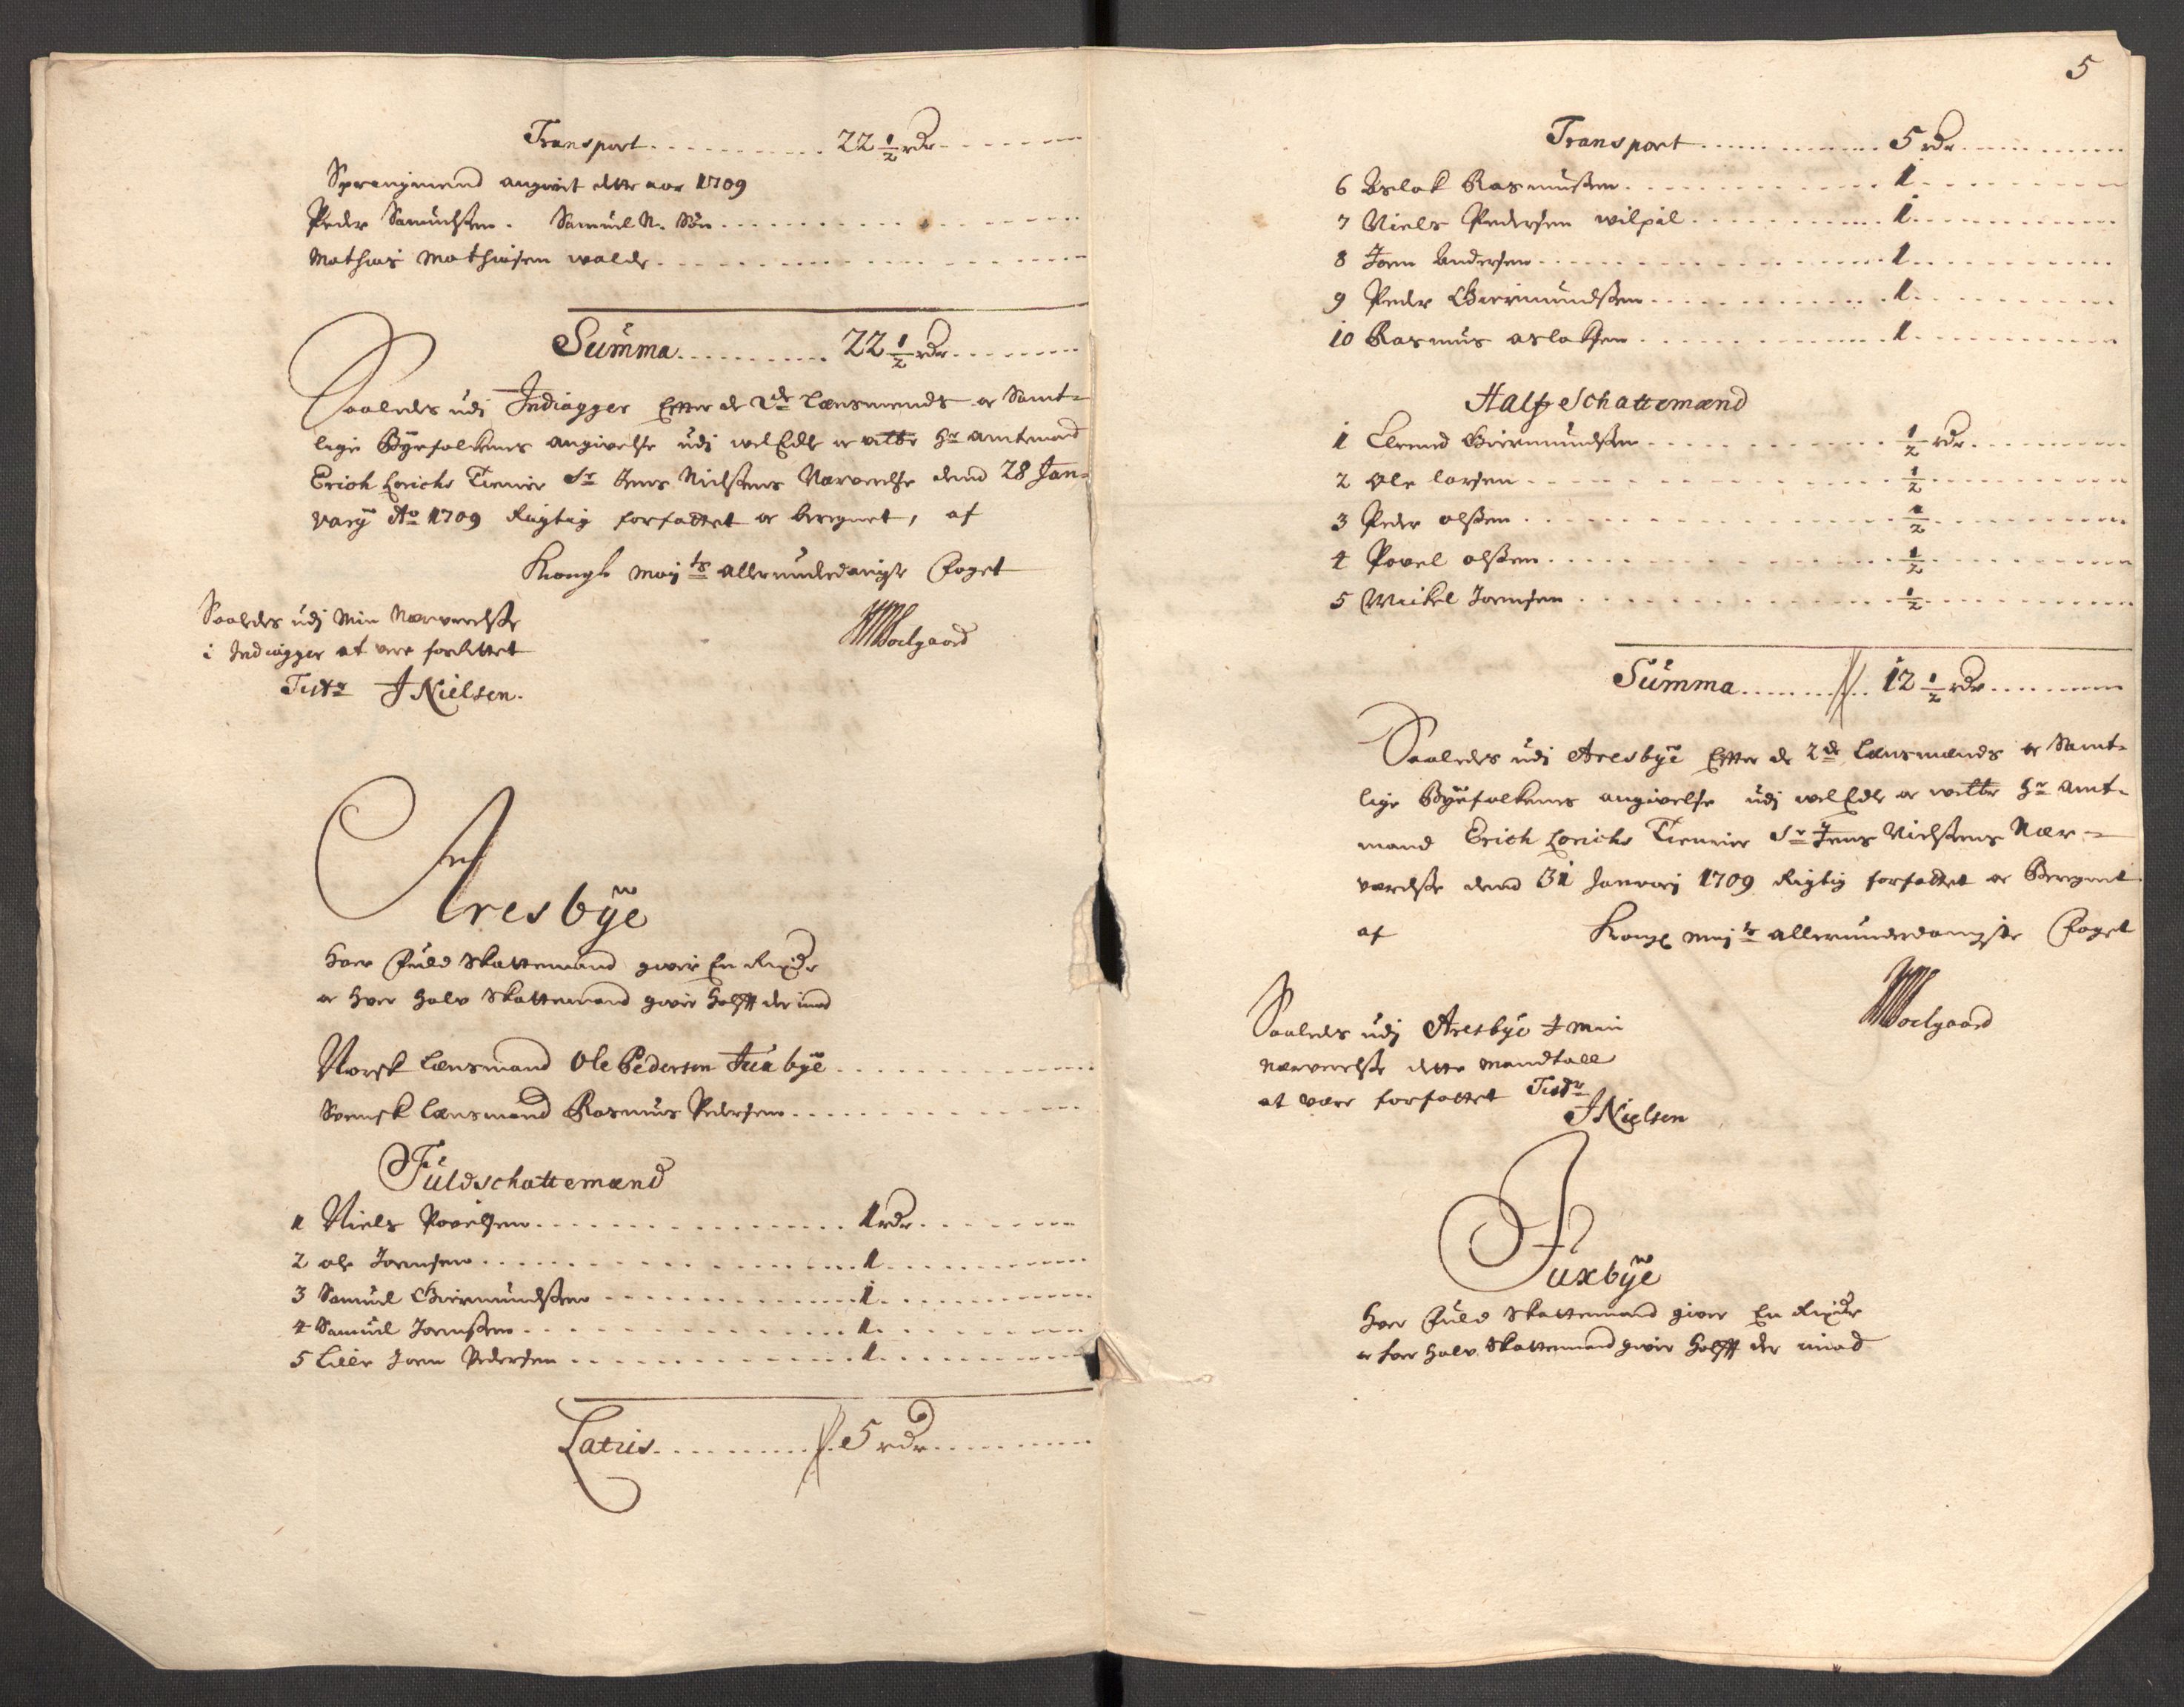 Transport . . . . . . . . . . . 22 1/2 rdr . . . . . . .
Sprengmend angivit dette aar 1709
Peder Samuelsen . Samuel N. Sön . . . . . . . . . .
Mathias Mathiasen walde . . . . . . . . . . . .
Summa . . . . . . . . . . 22 1/2 rdr . . . . . . .
Saaledes udi Indiagger Efter de 2de Lænsmends og Samt-
lige Byefolkenes angivelse udi welEdle og h:r Amtmand
Erich Lorichs Tienner Sr Jens Nielsens Nærverelse dend 28 Jan-
varÿ Ao 1709 Rigtig forfattet og beregnet, af
Kongl May:ts allerunderdanigste Foget
Saaledes udj Min Nærverelse
i Indiagger at vere forfattet
Test: J Nielsen.
Soelgaard
Aresbÿe
Hver Fuld Skattemand giver En Rixdr
og hver halv Skattemand giver halfft der imod
Norsk Lænsmand Ole Pedersen Juxbÿe . . . . . . . . . .
Svensk Lænsmand Rasmus Pedersen . . . . . . . . . .
Fuldschattemænd
1 Niels Povelsen . . . . . . . . . . 1 rdr . . . . . .
2 ole Joensen . . . . . . . . . . 1 . . . . . .
3 Samuel Giermundsen . . . . . . . . 1 . . . . . .
4 Samuel Joensen . . . . . . . . . . 1 . . . . . .
5 Lille Joen Pedersen . . . . . . . . . 1 . . . . . .
Latus . . . . . . . . . 5 rdr . . . . . . .
5
Transport . . . . . . . . . . 5 rdr . . . . . . .
6 Aslak Rasmusen . . . . . . . . . . 1 . . . . . .
7 Niels Pedersen wilpil . . . . . . . . 1 . . . . . .
8 Joen Andersen . . . . . . . . . . 1 . . . . . .
9 Peder Giermundsen . . . . . . . . . 1 . . . . . .
10 Rasmus aslaksen . . . . . . . . . 1 . . . . . .
Half Schattemænd
1 Erend Giermundsen . . . . . . . . . 1/2 rdr . . . . . .
2 Ole larsen . . . . . . . . . . 1/2 . . . . . .
3 Peder olsen . . . . . . . . . . 1/2 . . . . . .
4 Povel olsen . . . . . . . . . . 1/2 . . . . . .
5 Mickel Joensen . . . . . . . . . . 1/2 . . . . . .
Summa . . . . . . . . 12 1/2 rdr . . . . . . .
Saaledes udi Aresbÿe Efter de 2de Lænsmænds og Samt-
lige Byefolkenes angivelse udj welEdle og h:r Amt-
mand Erich Lorichs Tienner Sr Jens Nielsens Nær-
værelse dend 31 Januarj 1709 Rigtig forfattet og Beregnet
af Kongl May:ts allerunderdanigste Foget
Saaledes udj Aresbÿe I Min
Nærverelse dette Mandtall
at være forfattet Test:
J Nielsen
Soelgaard
Juxbÿe
Hver Fuld Skattemand giver En Rixdr
og hver halv Skattemand giver halfft der imod